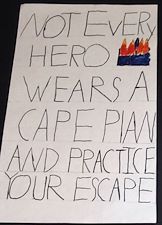 NOT EVER
HERO
WEARS A
CAPE PlAN
AND PRACTICE
YOUR ESCAPE